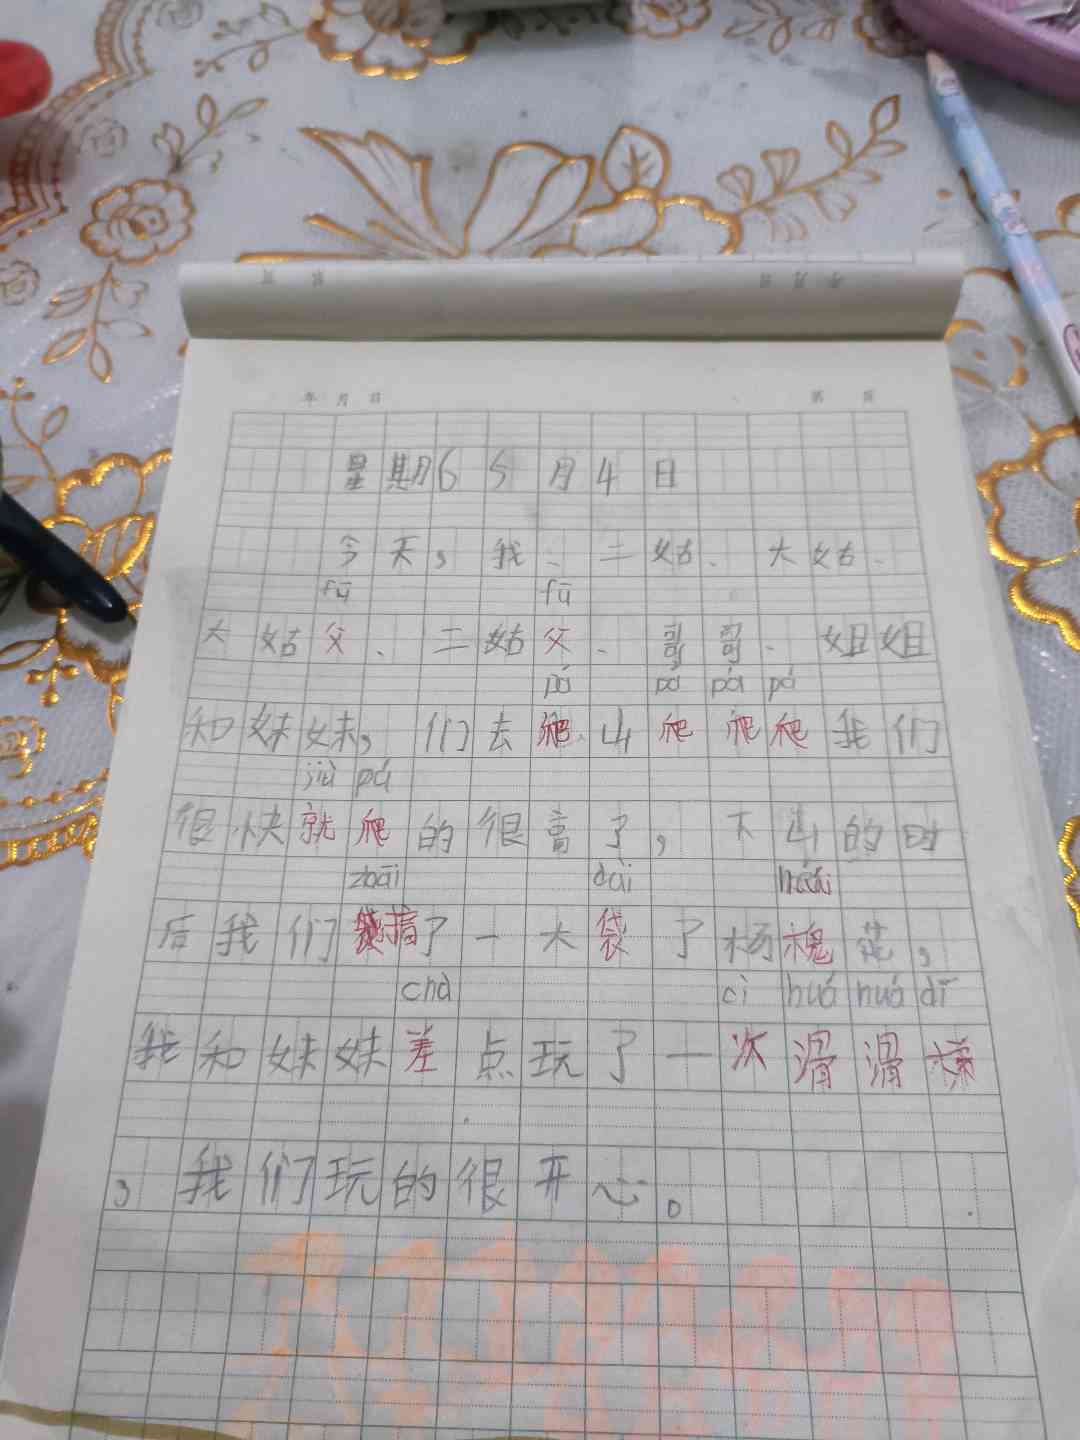 年 月 日 第 页
星期6 5月4日
今天，我、二姑、大姑、
fū fū
大姑父、二姑父、哥哥、姐姐
pá pá pá pá
和妹妹，们去爬山爬爬爬我们
jiù pá
很快就爬的很高了，下山的时
zhāi dài huái
后我们摘了一大袋了杨槐花，
chà cì huá huá dī
我和妹妹差点玩了一次滑滑梯
，我们玩的很开心。